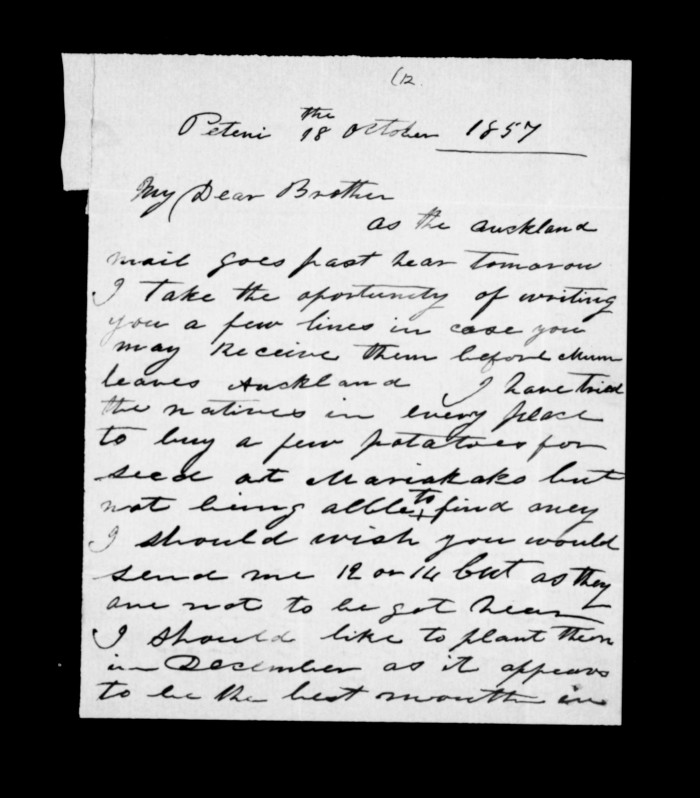 (12.
Peteni the 18 October 1857
My Dear Brother
as the auckland
mail goes past hear tomorow
I take the oportunity of writing
you a few lines in case you
may Receive them before Mum
leaves Auckland I have tried
the natives in every place
to buy a few potatoes for
seed at Mariakako but
not being allble to find aney
I should wish you would
send me 12 or 14 Cwt as they
are not to be got hear
I should like to plant them
in December as it appears
to be the best mounth in